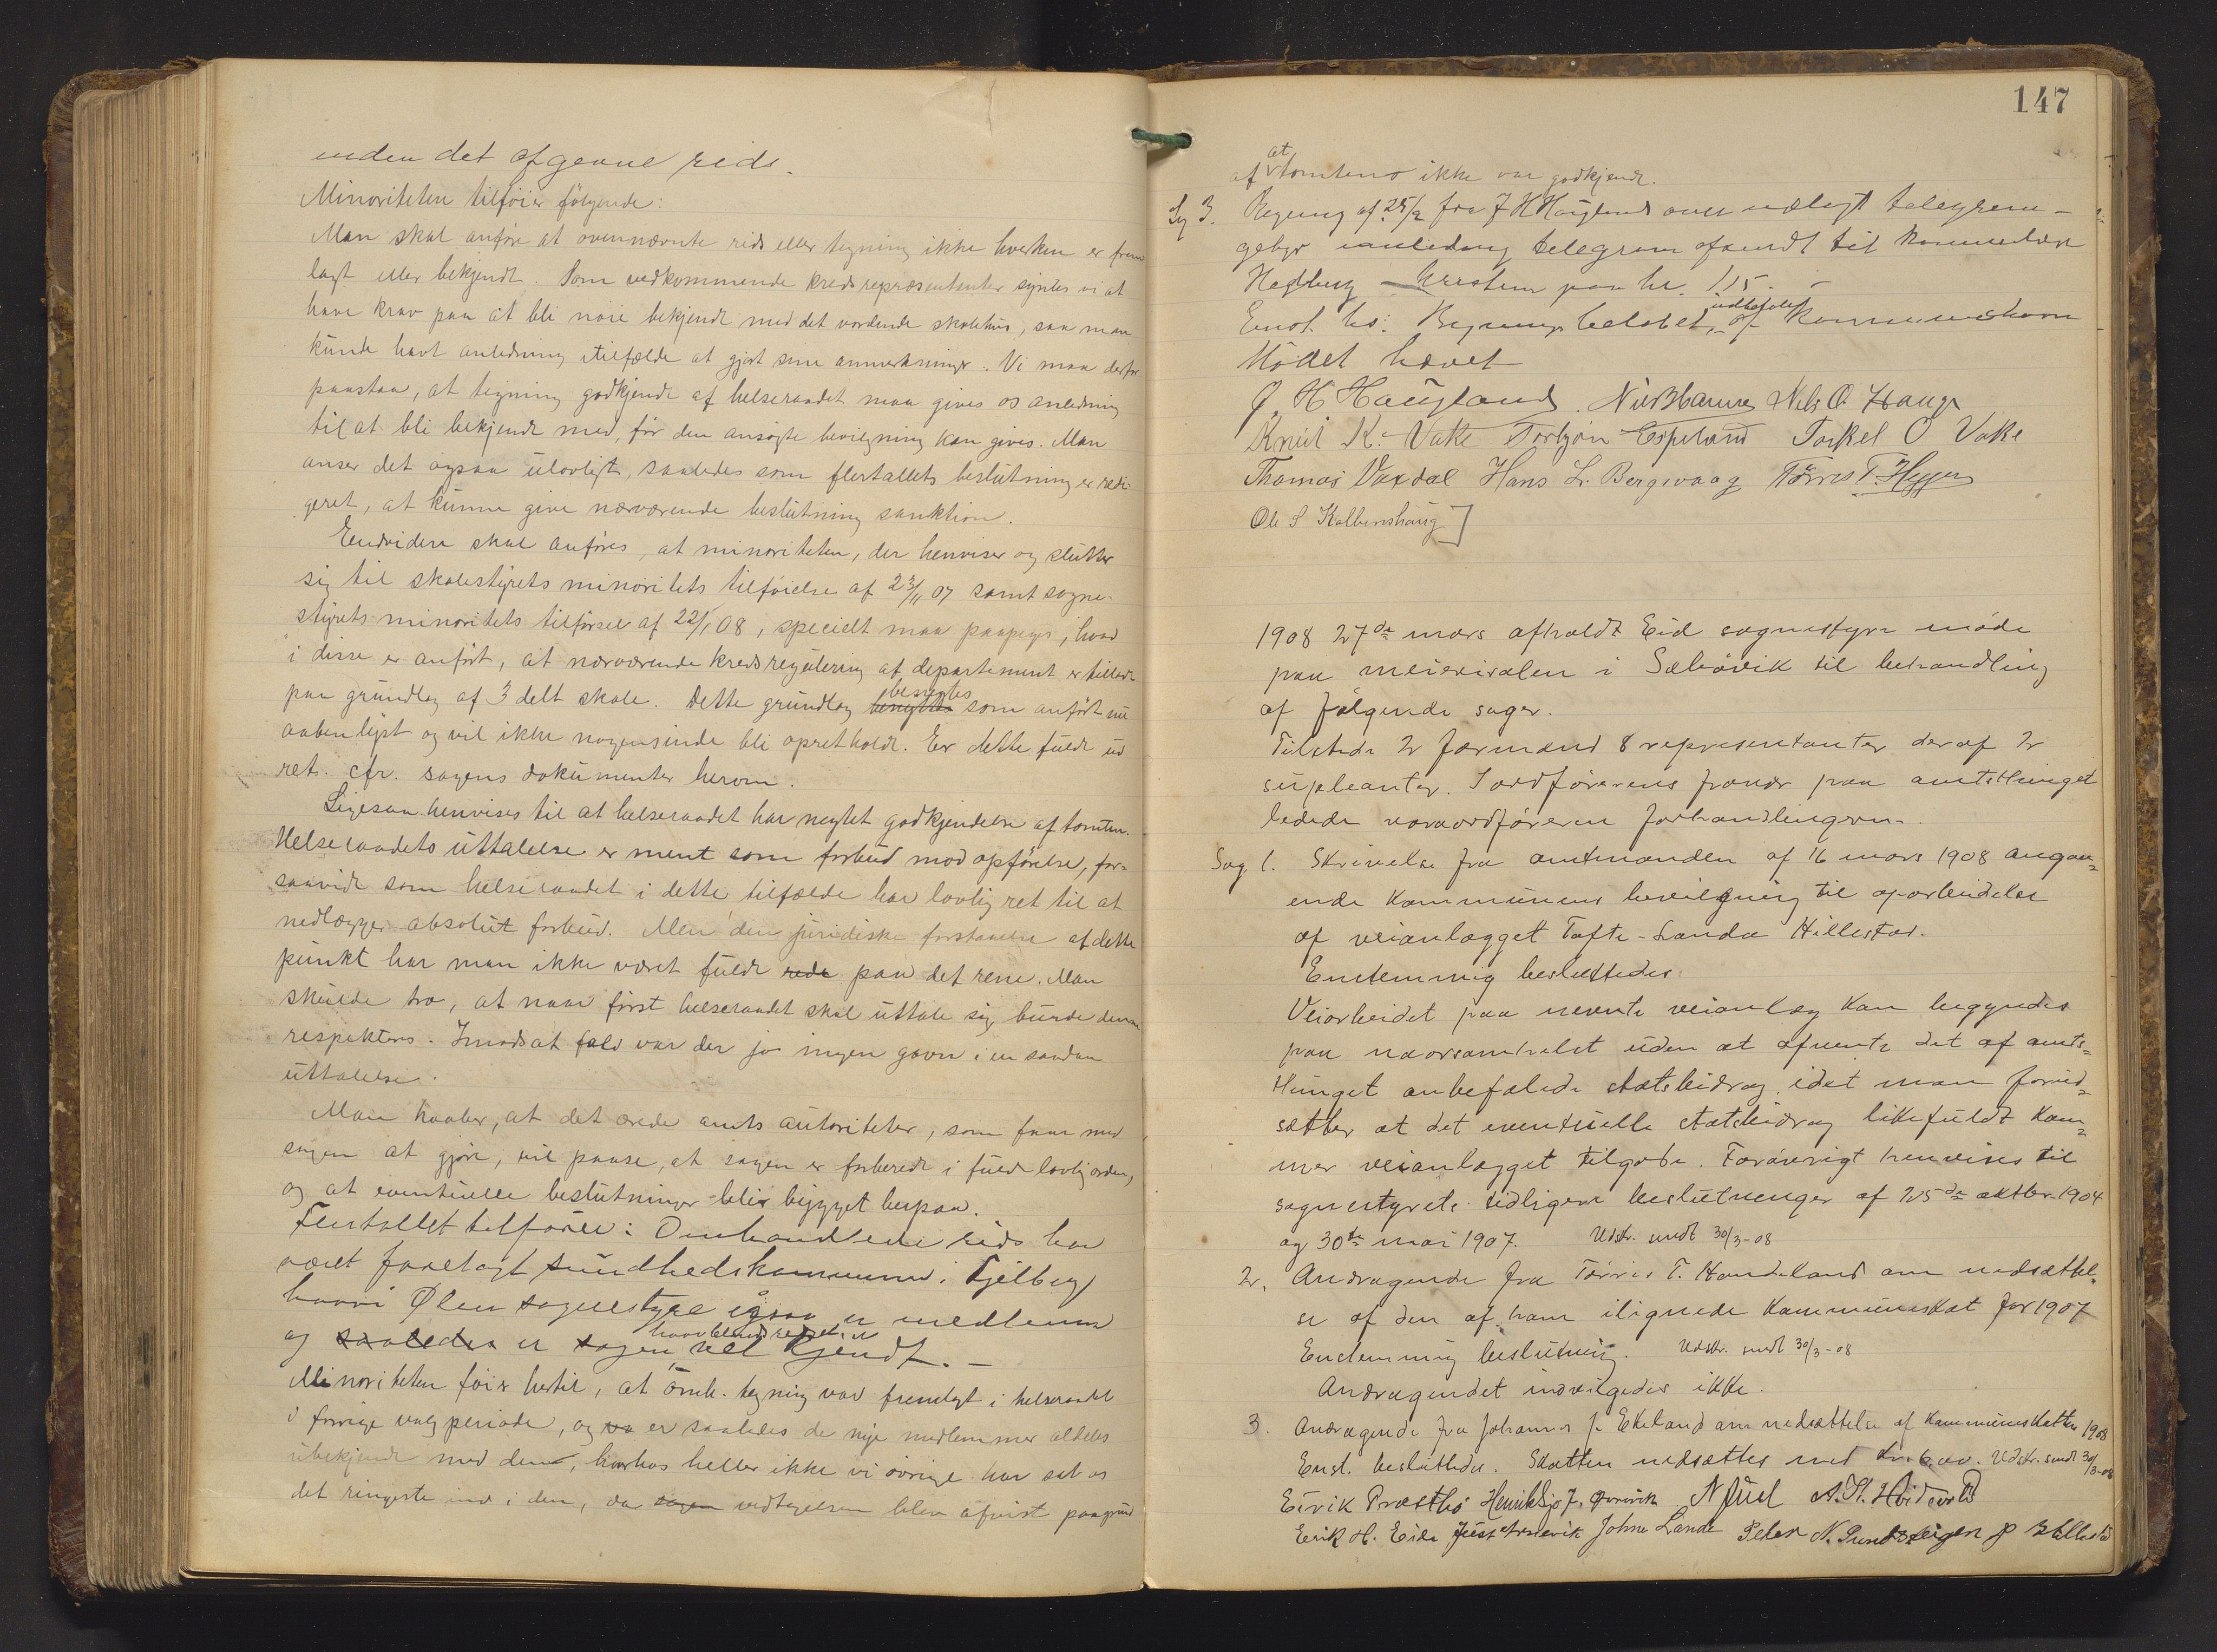 uden det afgevne rids.
Minoriteten tilføier følgende:
Man skal anføre at ovennævnte rids eller tegning ikke hverken er frem
lagt eller bekjendt. Som vedkommende kredsrepræsentanter syntes vi at
have krav paa at bli nøie bekjendt med det vordende skolehus, saa man
kunde havt anledning itilfælde at gjort sine anmerkninger. Vi maa derfor
paastaa, at tegning godkjendt af helseraadet maa gives os anledning
til at bli bekjendt med, før den ansøgte bevilgning kan gives. Man
anser det ogsaa ulovligt, saaledes som flertallets beslutning er redi-
geret, at kunne give nærværende beslutning sanktion.
Endvidere skal anføres, at minoriteten, der henviser og slutter
sig til skolestyrets minoritets tilføielse af 23/11 07 samt sogne-
styrets minoritets tilførsel af 22/1 08, specielt maa paapege, hvad
i disse er anført, at nærværende kredsregulering af departement er tilladt
paa grundlag af 3 delt skole. Dette grundlag benyttes som anført nu
aabenlyst og vil ikke nogensinde bli opretholdt. Er dette fuldt ud
ret. cfr. sagens dokumenter herom.
Ligesaa henvises til at helseraadet har negtet godkjendelse af tomten.
Helseraadets uttalelse er ment som forbud mod opførelse, for-
saavidt som helseraadet i dette tilfælde har lovlig ret til at
nedlægge absolut forbud. Men den juridiske forstaaelse af dette
punkt har man ikke været fuldt rede paa det rene. Man
skulde tro, at naar først helseraadet skal uttale sig burde denne
respekteres. Imodsat fald var der jo ingen gavn i en saadan
uttalelse.
Man haaber, at det ærede amts autoriteter, som faar med
sagen at gjøre, vil paase, at sagen er forberedt i fuld lovlig orden,
og at eventuelle beslutninger blir bygget herpaa.
Flertallet tilføier: Omhandlede rids har
været forelagt sundhedskommissionen i Fjelberg
hvori Ølen sognestyre ogsaa er medlem
og saaledes er sagen vel kjendt. —
Minoriteten føier hertil, at omh. tegning var fremlagt i helseraadet
i forrige valgperiode, og va er saaledes de nye medlemmer aldeles
ubekjendt med den, hvorhos heller ikke vi øvrige har set os
det ringeste ind i den, da sagen vedtagelsen blev afvist paagrund
147
af at tomten ikke var godkjendt.
Sg 3. Regning af 25/2 fra J H Haugland over udlagt telegram-
gebyr anledning telegram afsendt til
paa kr. 1,15. -
Enst. bs: Regningsbeløbet udbetales af kommunekassen
Mødet hævet
J. H Haugland. Nils O. Hauge
Knut K. Vake Torbjøn Espeland Torkel O Vake
Thomas Vaxdal Hans L. Bergsvaag Tørres T.
Ole S Kalbenshaug
1908 27de mars afholdt Eid sognestyre møde
paa meierisalen i Sæbøvik til behandling
af følgende sager.
Tilstede 2 formænd 8 representanter deraf 2
supleanter. I ordførerens fravær paa amtsthinget
ledede varaordføreren forhandlingerne.
Sag 1. Skrivelse fra amtmanden af 16 mars 1908 angaa=
ende kommunens bevilgning til oparbeidelse
af veianlægget Tofte-Landa Hillestad.
Enstemmig besluttedes
Veiarbeidet paa nevnte veianlæg kan begyndes
paa nuorsomhelst uden at afvente det af amts=
thinget anbefalede statsbidrag, idet man forud=
sætter at det eventuelle statsbidrag likefuldt kom=
mer veianlægget tilgode. Forøvrigt henvises til
sognestyrets tidligere beslutninger af 25de oktbr. 1904
og 30te mai 1907. Udskr. sendt 30/3-08
2. Andragende fra Tørris T. Handeland om nedsættel=
se af den af ham ilignede kommuneskat for 1907
Enstemmig beslutning. Udskr. sendt 30/3-08
Andragendet indvilgedes ikke.
3. Andragende fra Johannes J. Ekeland om nedsættelse af kommuneskatten 1908
Enst. besluttedes. Skatten nedsættes med kr. 6,00. Udskr. sendt 30/3-08
Eirik Præsthø Henrik N Juel
Erik H. Eide Johne Landa Peter N. Hillestad